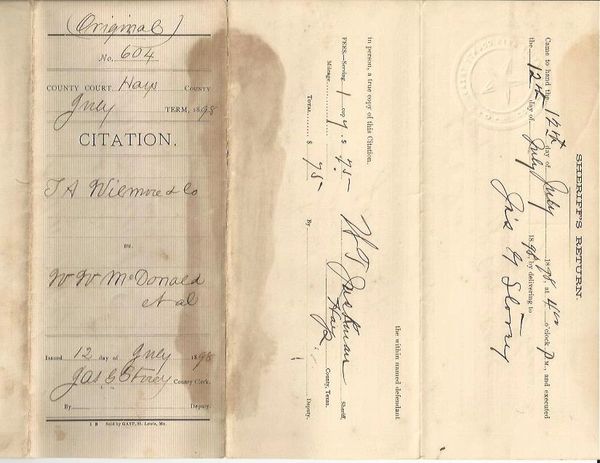 (Original)
No. 604
COUNTY COURT, Hays COUNTY
July TERM, 1898
CITATION.
J A Wilmore & Co
vs.
W W McDonald
et al
Issued 12 day of July 1898
Jas G Storey County Clerk.
By Deputy.
1 B Sold by GAST, St. Louis, Mo.
SHERIFF'S RETURN.
Came to hand the 12th day of July 1898, at 4 o'clock P M., and executed
the 12th day of July 1898, by delivering to
Jas G Storey
the within named defendant
in person, a true copy of this Citation.
FEES—Serving 1 copy $ 75
Mileage,
TOTAL $ 75
Sheriff,
Hays County, Texas.
By Deputy.